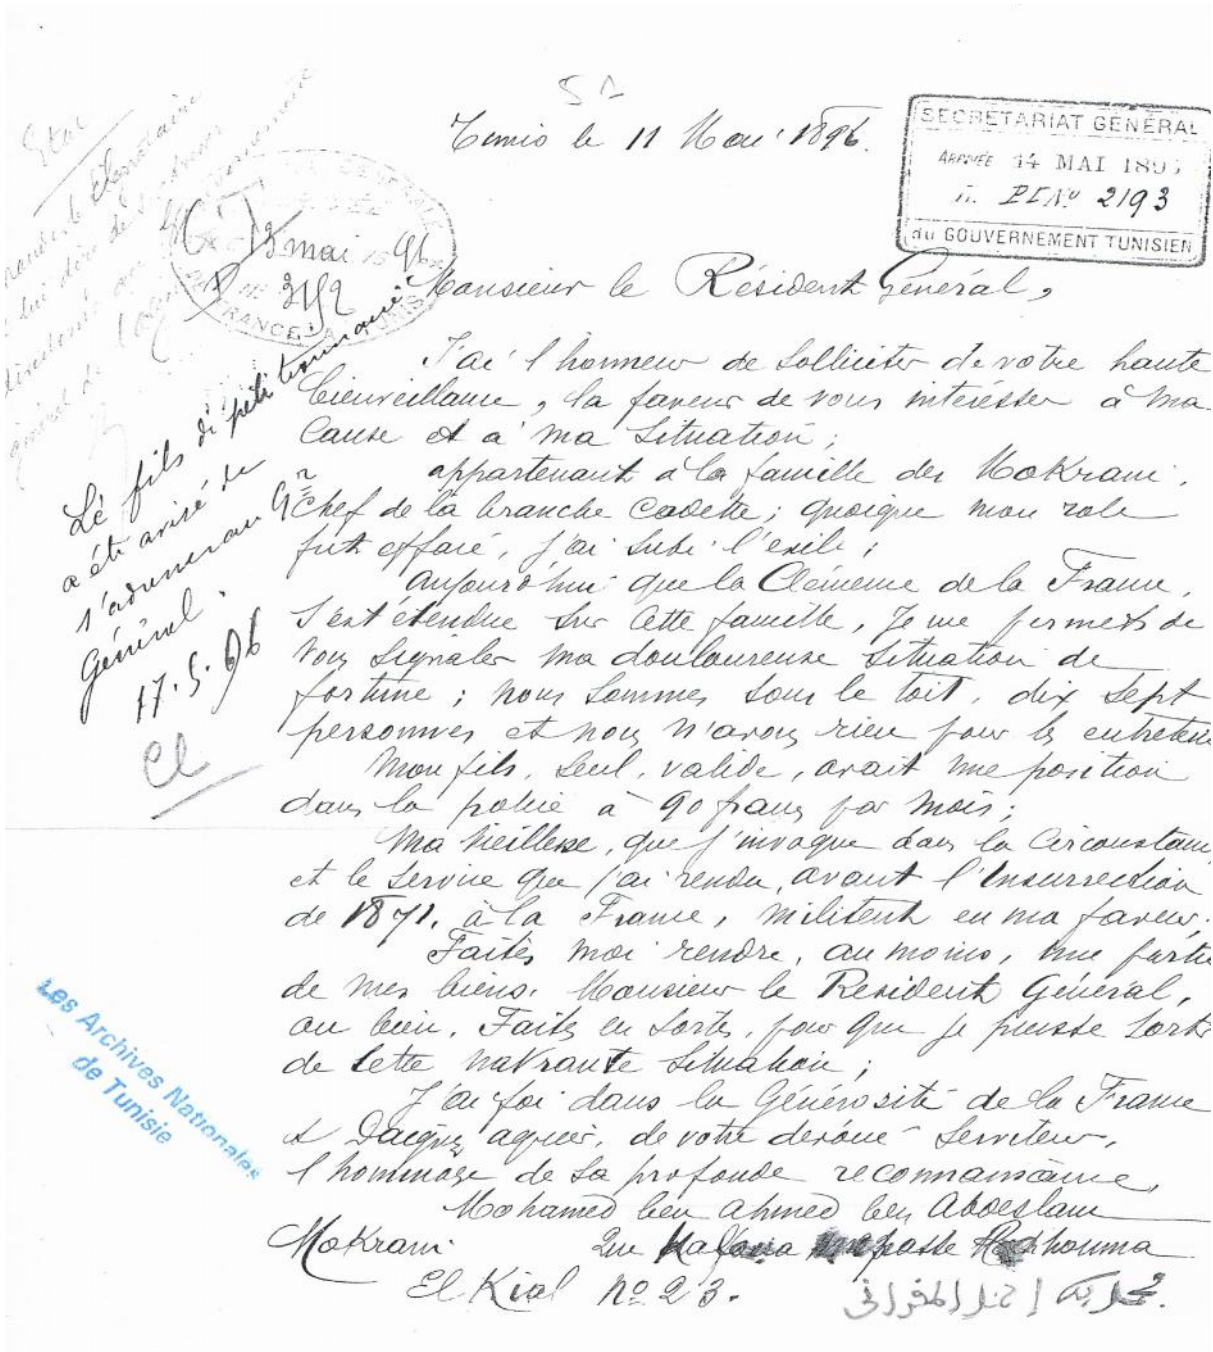 Tunis le 11 Mai 1896.
SECRÉTARIAT GÉNÉRAL
ARRIVÉE 14 MAI 189
N. 2193
du GOUVERNEMENT TUNISIEN
13 mai 1896
FRANCE A TUNIS
Monsieur le Résident Général,
J'ai l'honneur de solliciter de votre haute
bienveillance, la faveur de vous intéresser à ma
Cause et à ma situation;
appartenant à la famille des Mokrani,
Chef de la branche Cadette; quoique mon role
fut effacé, j'ai subi l'exile;
aujourd'hui que la Clémence de la France,
s'est étendue sur cette famille, Je me permets de
vous signaler ma douloureuse situation de
fortune; nous sommes sous le toit, dix sept
personnes et nous n'avons rien pour les entretenir
Mon fils, seul, valide, avait une position
dans la police à 90 francs par mois;
Ma vieillesse, que j'invoque dans la Circonstance
et le service que j'ai rendu, avant l'Insurrection
de 1871, à la France, militent en ma faveur.
Faites moi rendre, au moins, une partie
de mes biens, Monsieur le Résident Général,
ou bien, Faites en sorte, pour que je puisse sortir
de cette navrante situation;
J'ai foi dans la Générosité de la France
et Daignez agréer, de votre dévoué serviteur,
l'hommage de sa profonde reconnaissance,
Mohamed ben Ahmed ben Abdeslam
Mokrani
El Kial No 23.
Le fils du pétitionnaire
a été avisé de
s'adresser au Gr
Général.
17.5.96
Les Archives Nationales
de Tunisie